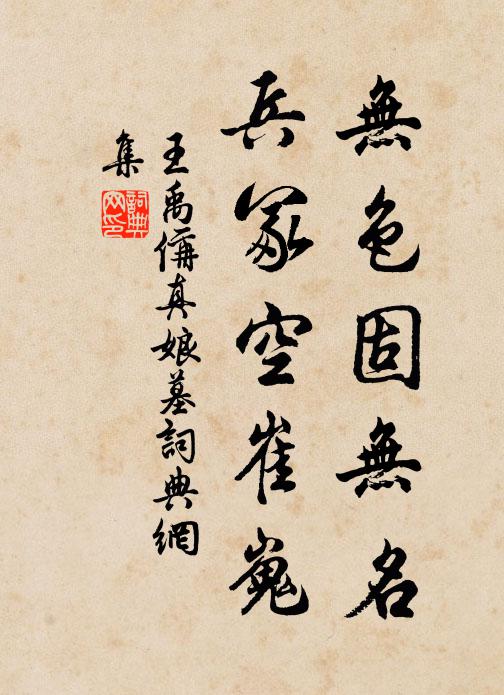 無色固無名
兵冢空崔嵬
王禹偁真娘墓詞典網
集
詞典
網印